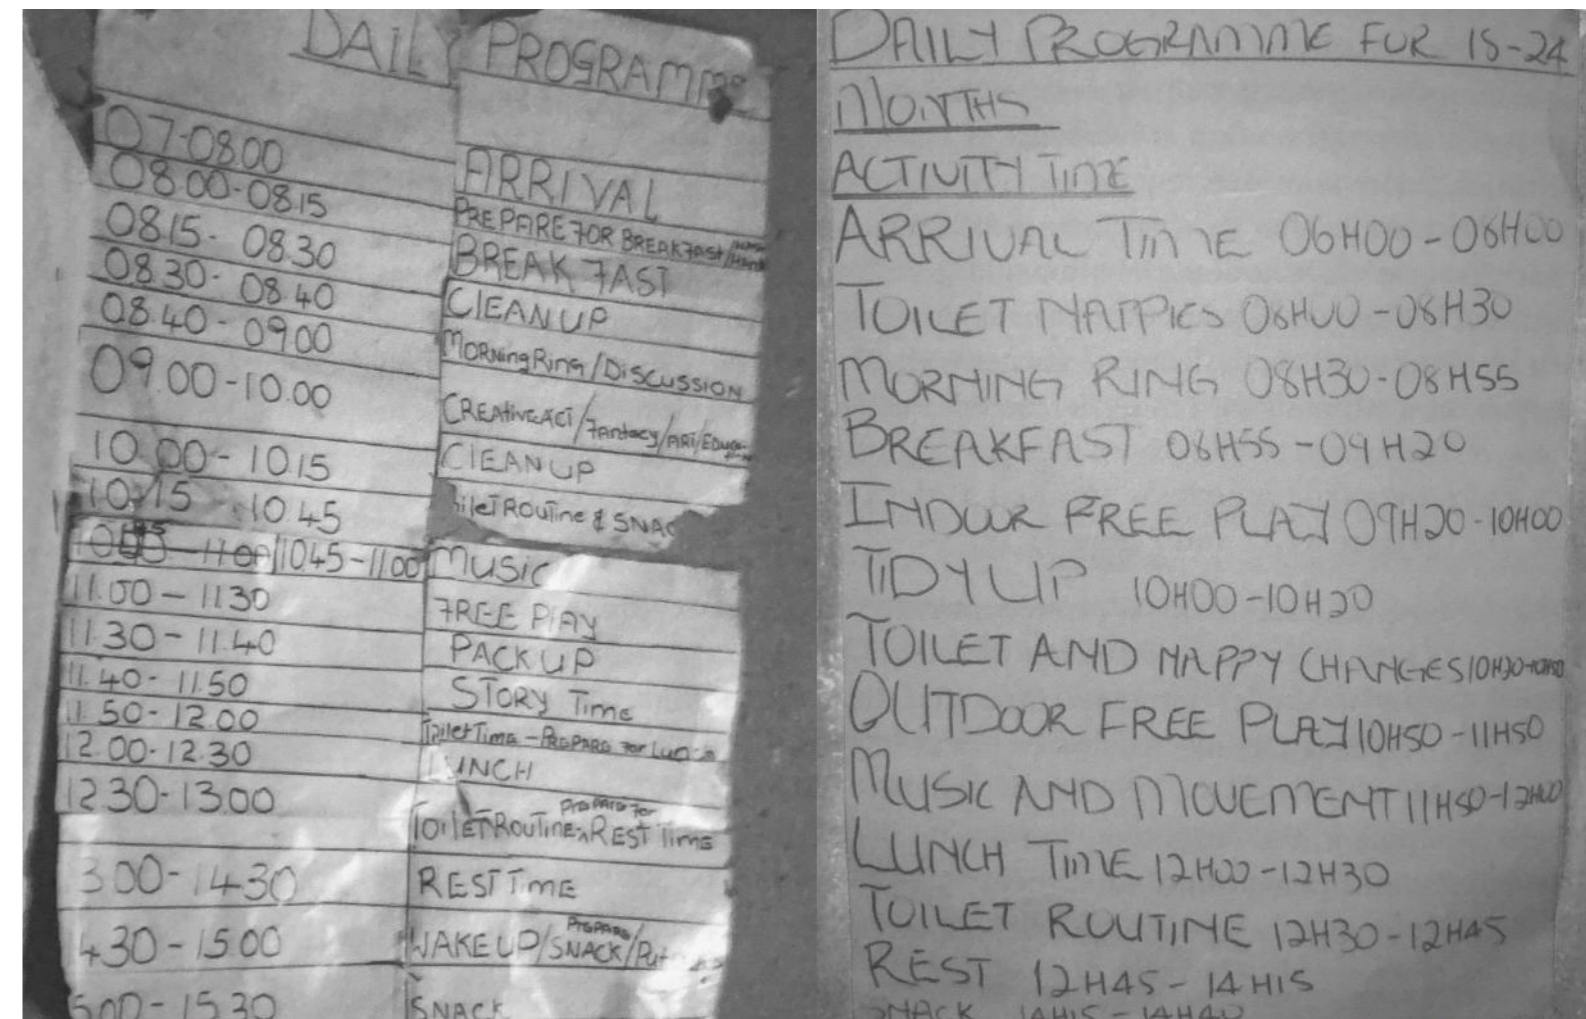 DAILY PROGRAMME
07-08.00 ARRIVAL
08.00-08.15 PREPARE FOR BREAKFAST/
08.15- 08.30 BREAKFAST
08.30- 08.40 CLEANUP
08.40-09.00 MORNING RING/DISCUSSION
09.00-10.00 CREATIVE ACT/Fantacy/ART/
10.00-10.15 CLEANUP
10.15 10.45 ROUTINE & SNAC
10.45-11.00 MUSIC
11.00-11.30 FREE PLAY
11.30-11.40 PACK UP
11.40-11.50 STORY TIME
11.50-12.00 Toilet Time - PREPARE for Lunch
12.00-12.30 LUNCH
12.30-13.00 TOILET ROUTINE PREPARE for REST TIME
3.00-14.30 REST TIME
4.30-15.00 WAKE UP/PREPARE SNACK/Put
5.00-15.30 SNACK
DAILY PROGRAMME FOR 18-24
MONTHS
ACTIVITY TIME
ARRIVAL TIME 06H00-08H00
TOILET NAPPIES 08H00-08H30
MORNING RING 08H30-08H55
BREAKFAST 08H55-09H20
INDOOR FREE PLAY 09H20-10H00
TIDY UP 10H00-10H20
TOILET AND NAPPY CHANGES
OUTDOOR FREE PLAY 10H50-11H50
MUSIC AND MOVEMENT 11H50-12H00
LUNCH TIME 12H00-12H30
TOILET ROUTINE 12H30-12H45
REST 12H45-14H15
SNACK 14H15-14H40